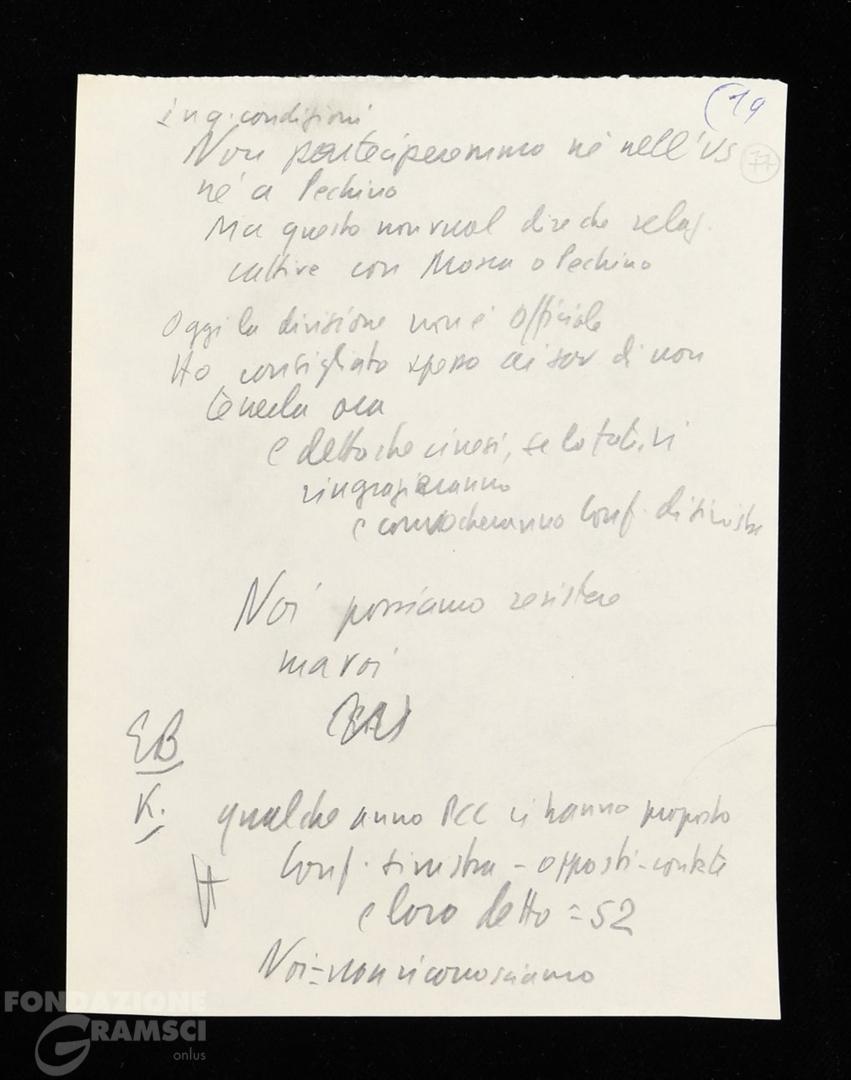 (19
77
in q. condizioni
Non parteciperemmo né nell'US
né a Pechino
Ma questo non vuol dire che relaz.
cattive con Mosca o Pechino
Oggi la divisione non è officiale
Ho consigliato spesso ai sov di non
tenerla ora
e detto che cinesi, se lo fate, vi
ringrazieranno
e convocheranno Conf. di sinistra
Noi possiamo resistere
ma voi
EB
K. qualche anno PCC ci hanno proposto
Conf. sinistra - opposti -
e loro detto = 52
Noi = non riconosciamo
FONDAZIONE
GRAMSCI
onlus